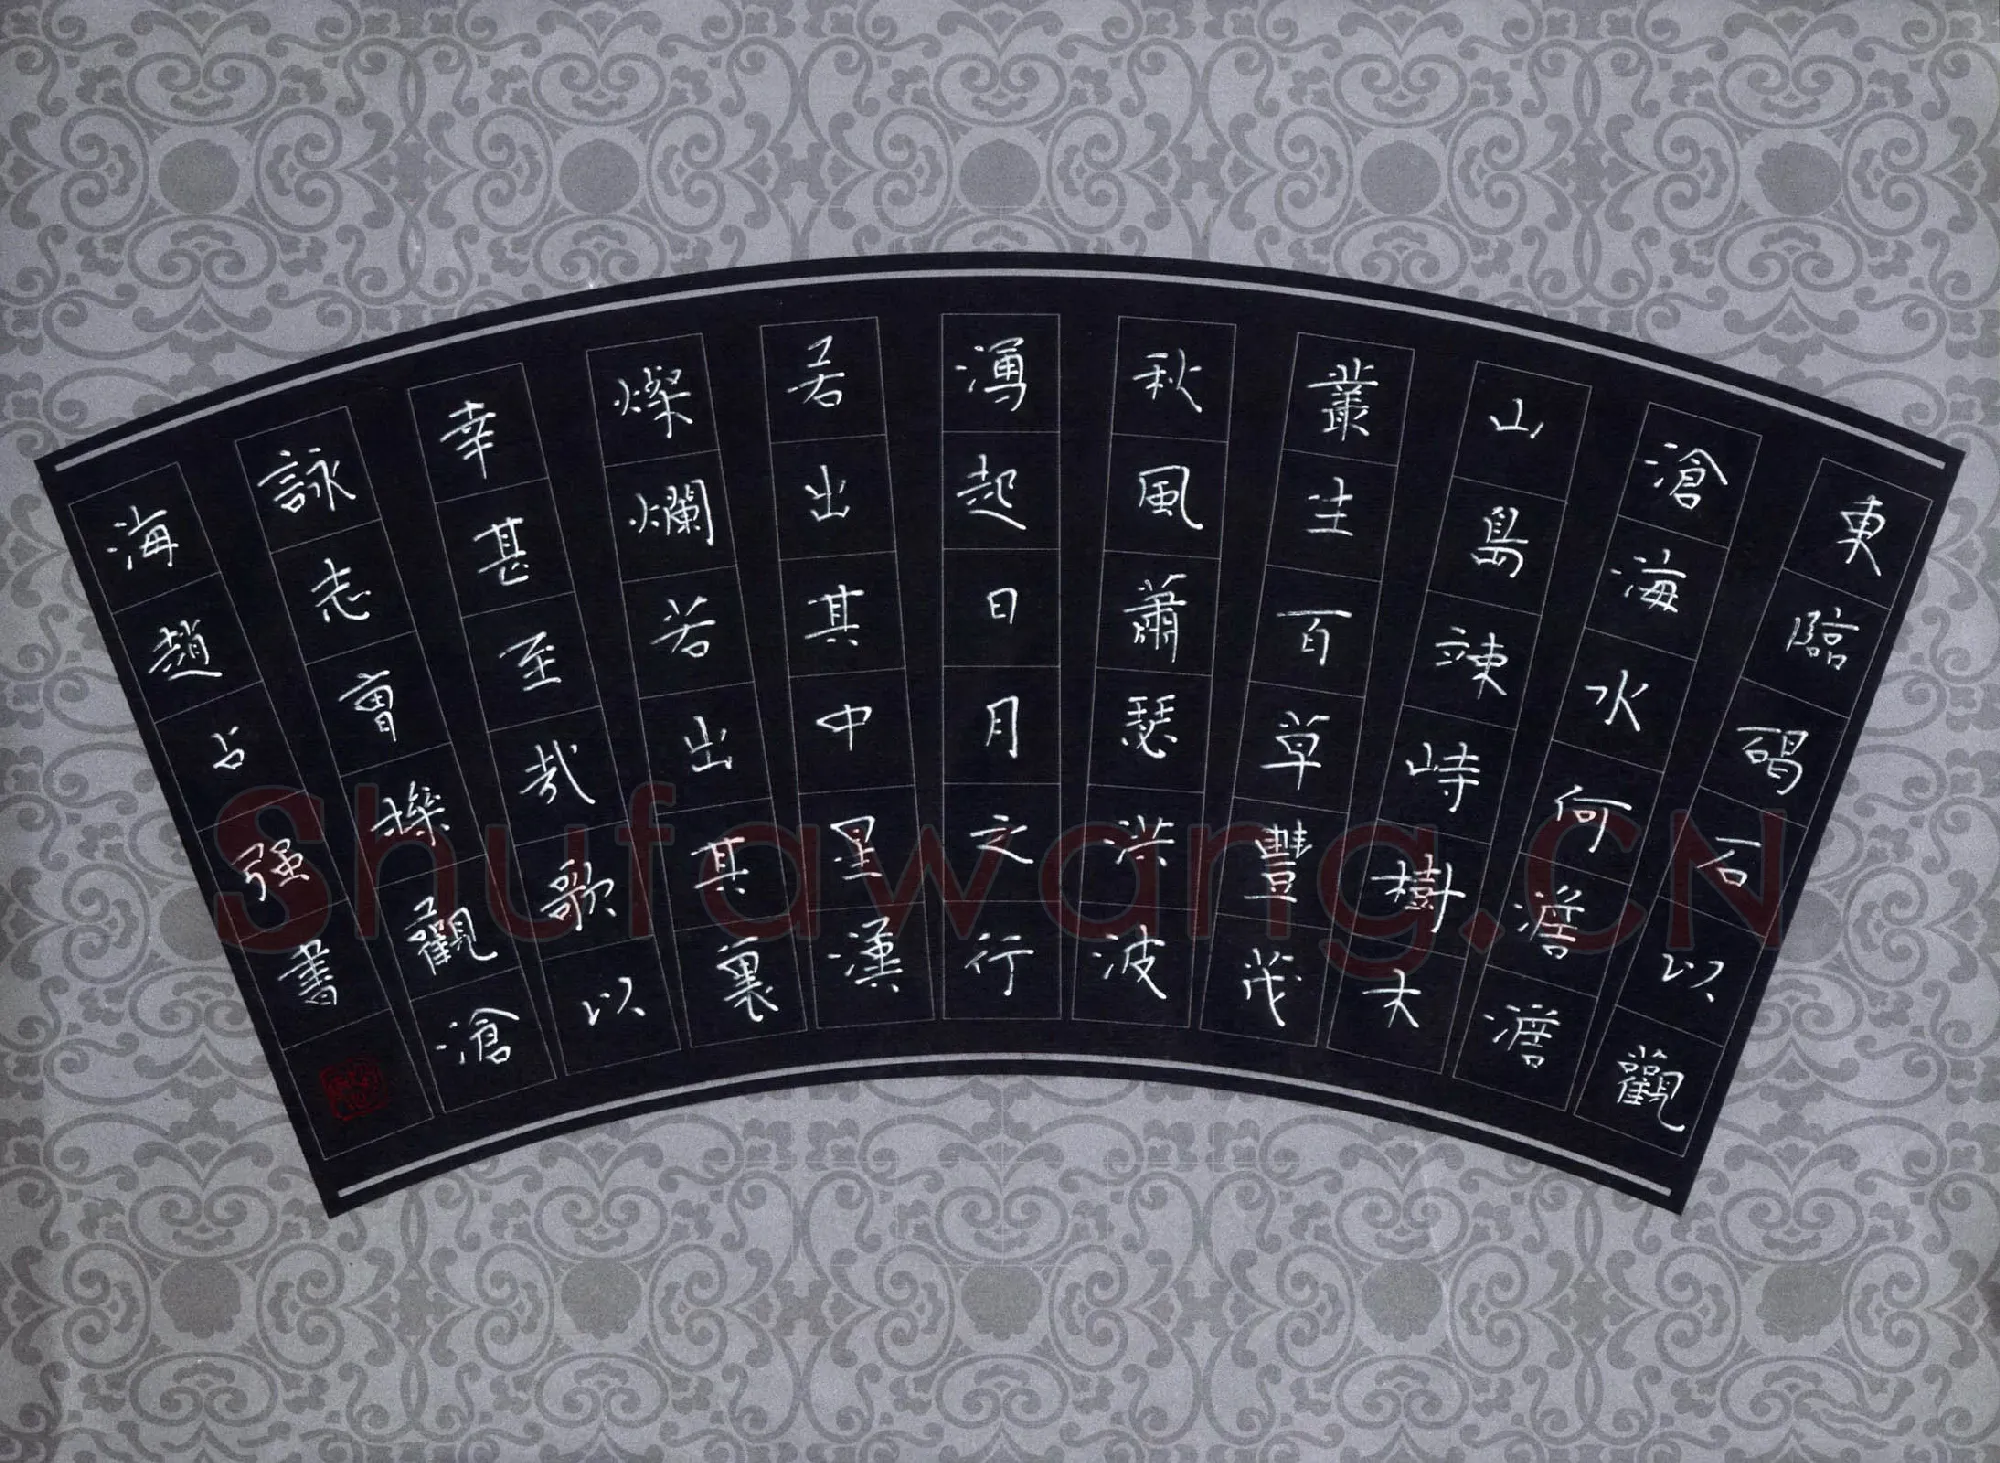 東臨碣石以觀
滄海水何澹澹
山島竦峙樹木
叢生百草豐茂
秋風蕭瑟洪波
湧起日月之行
若出其中星漢
燦爛若出其裏
幸甚至哉歌以
詠志曹操觀滄
海趙强書
Shufawang.CN